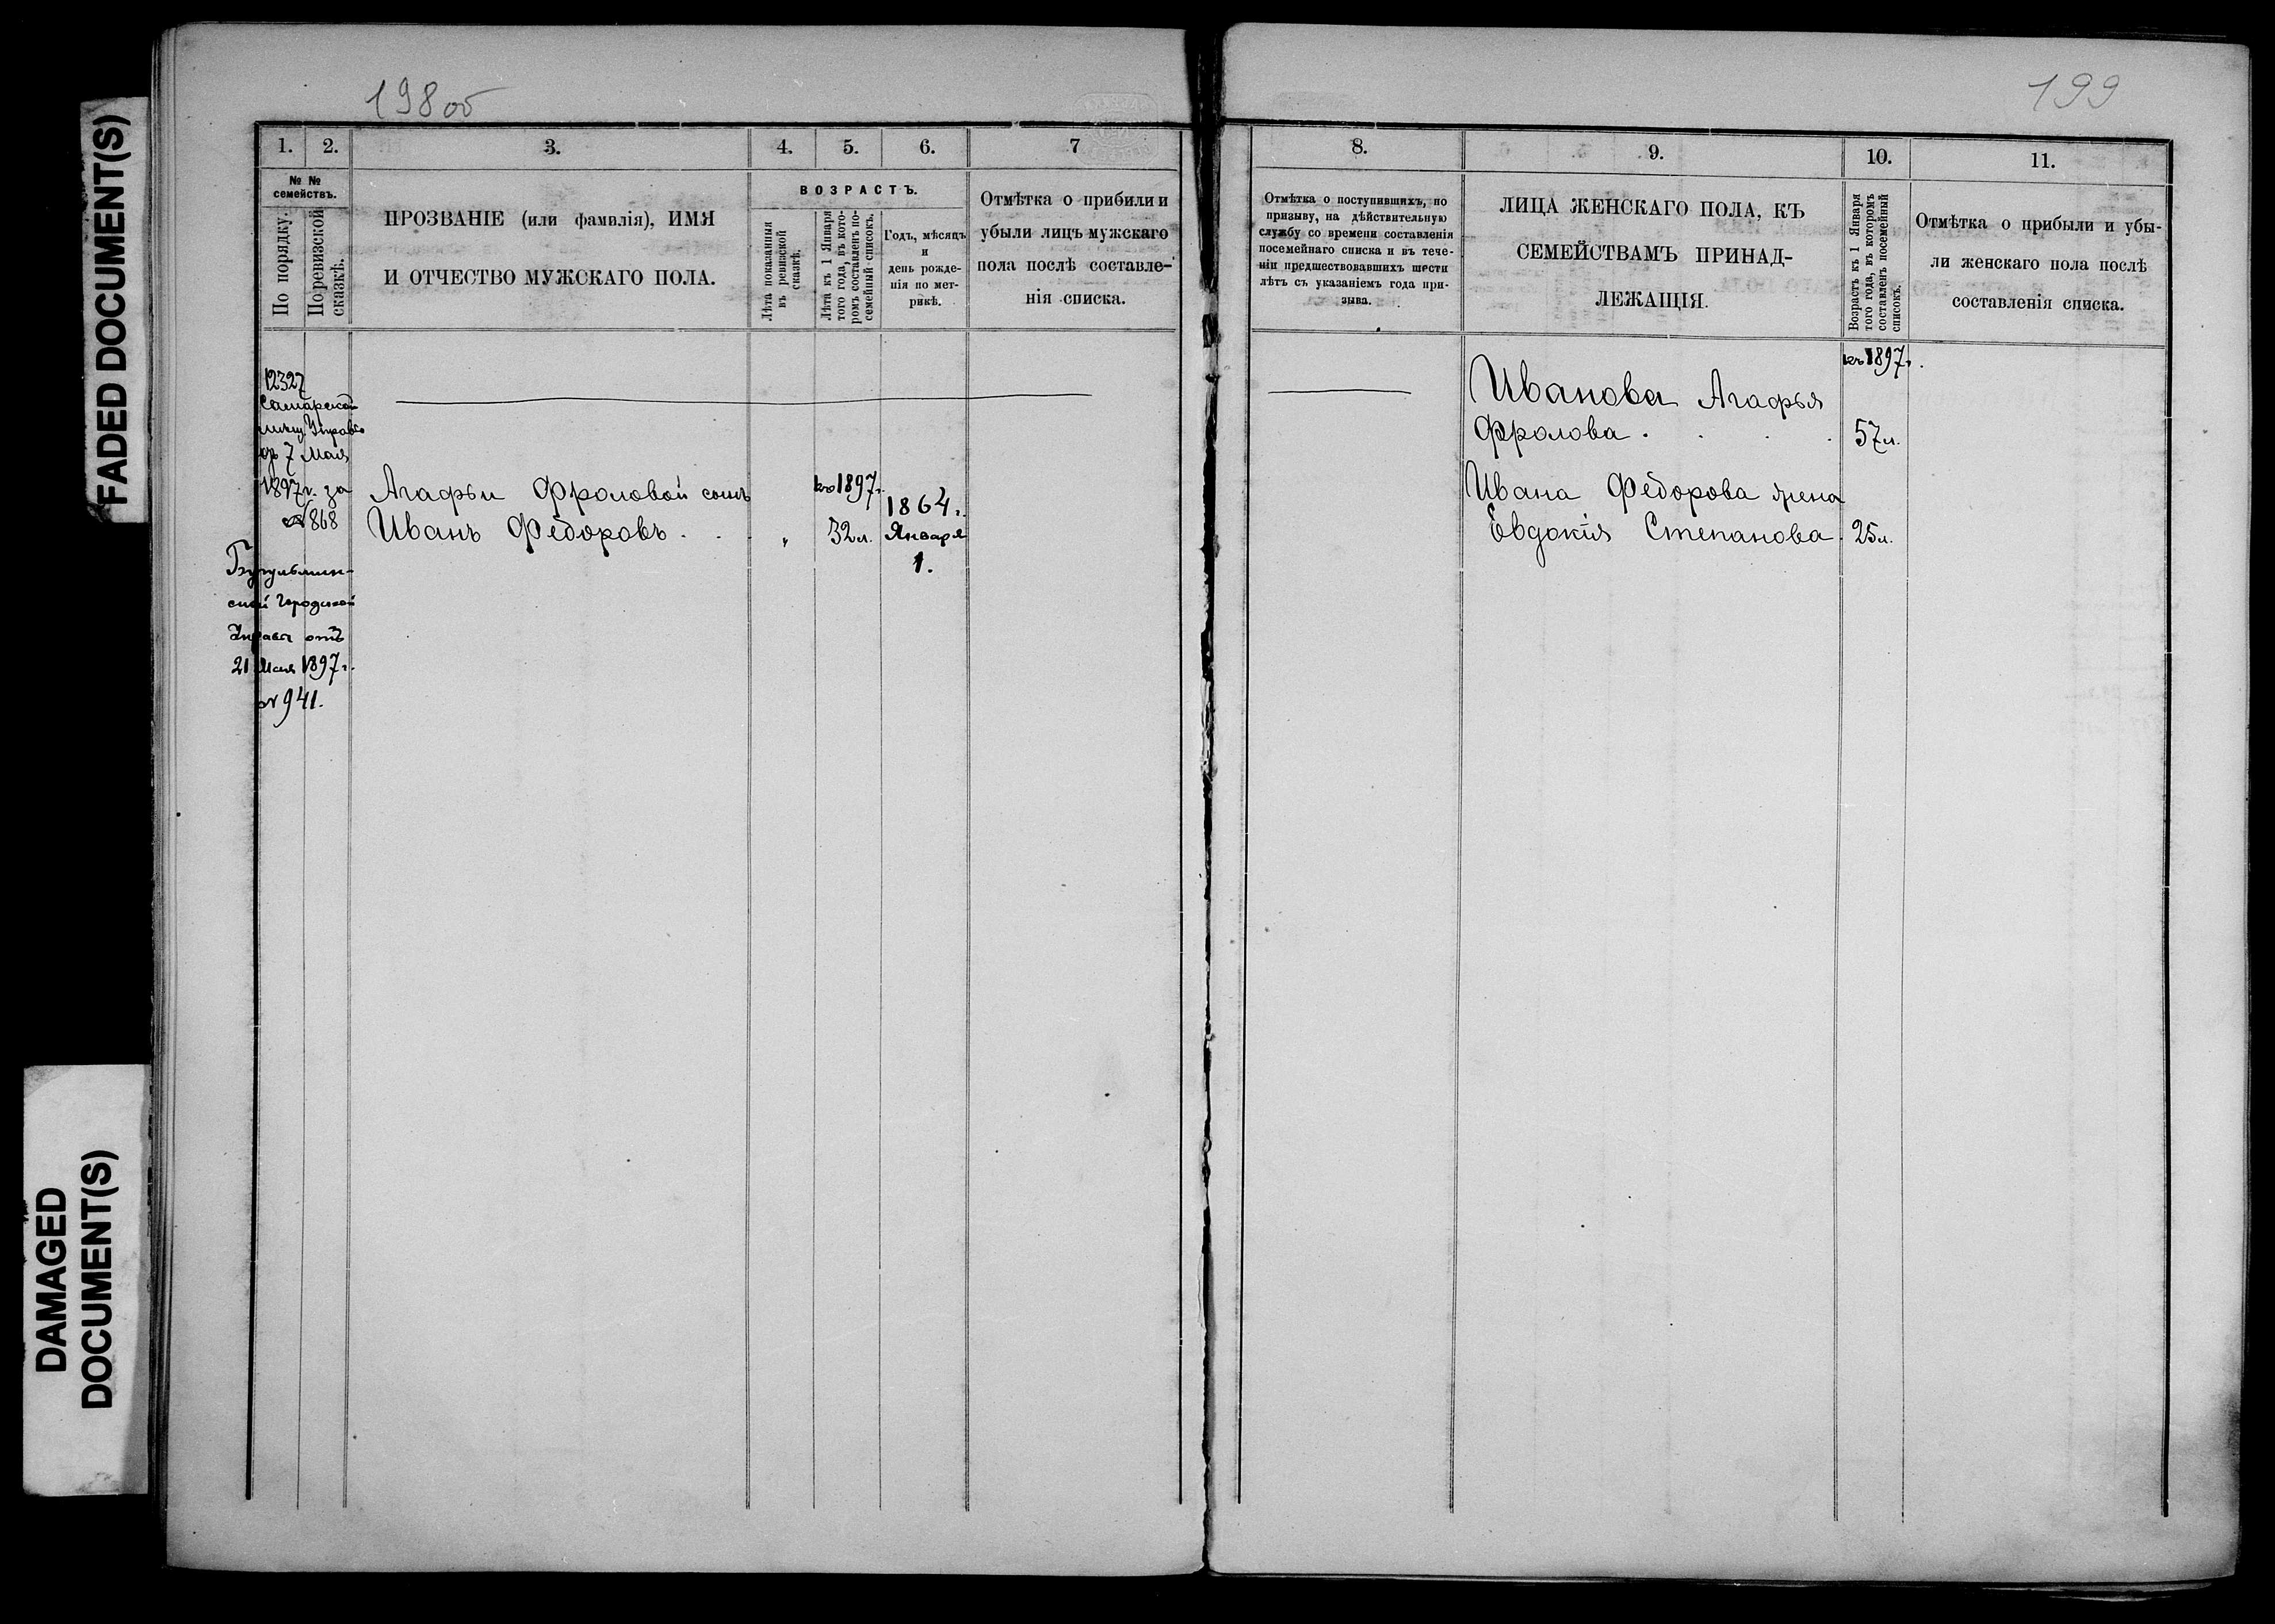 FADED DOCUMENT(S)
DAMAGED
DOCUMENT(S)
198 об
1.
2.
3.
4.
5.
6.
7
№ №
семействъ.
По порядку.
По ревизской
сказкѣ.
ПРОЗВАНІЕ (или фамилія), ИМЯ
И ОТЧЕСТВО МУЖСКАГО ПОЛА.
ВОЗРАСТЪ.
Лѣта показанныя
въ ревизской
сказкѣ.
Лѣта къ 1 Января
того года, въ кото-
ромъ составленъ по-
семейный списокъ.
Годъ, мѣсяцъ
и
день рожде-
нія по мет-
рикѣ.
Отмѣтка о прибыли и
убыли лицъ мужскаго
пола послѣ составле-
нія списка.
12327
Самарской
мѣщ. Управы
7 Мая
1897 г. за
№ 868
Бугульмин-
ской Городской
Управы отъ
21 Мая 1897 г.
№ 941.
Агафьи Фроловой сынъ
Иванъ Федоровъ . .
„
къ 1897 г.
32 л.
1864 г.
Января
1.
199
8.
9.
10.
11.
Отмѣтка о поступившихъ, по
призыву, на дѣйствительную
службу со времени составленія
посемейнаго списка и въ тече-
ніи предшествовавшихъ шести
лѣтъ съ указаніемъ года при-
зыва.
ЛИЦА ЖЕНСКАГО ПОЛА, КЪ
СЕМЕЙСТВАМЪ ПРИНАД-
ЛЕЖАЩІЯ.
Возрастъ къ 1 Января
того года, въ которомъ
составленъ посемейный
списокъ.
Отмѣтка о прибыли и убы-
ли женскаго пола послѣ
составленія списка.
къ 1897 г.
Иванова Агафья
Фролова . . . .
57 л.
Ивана Федорова жена
Евдокія Степанова.
25 л.